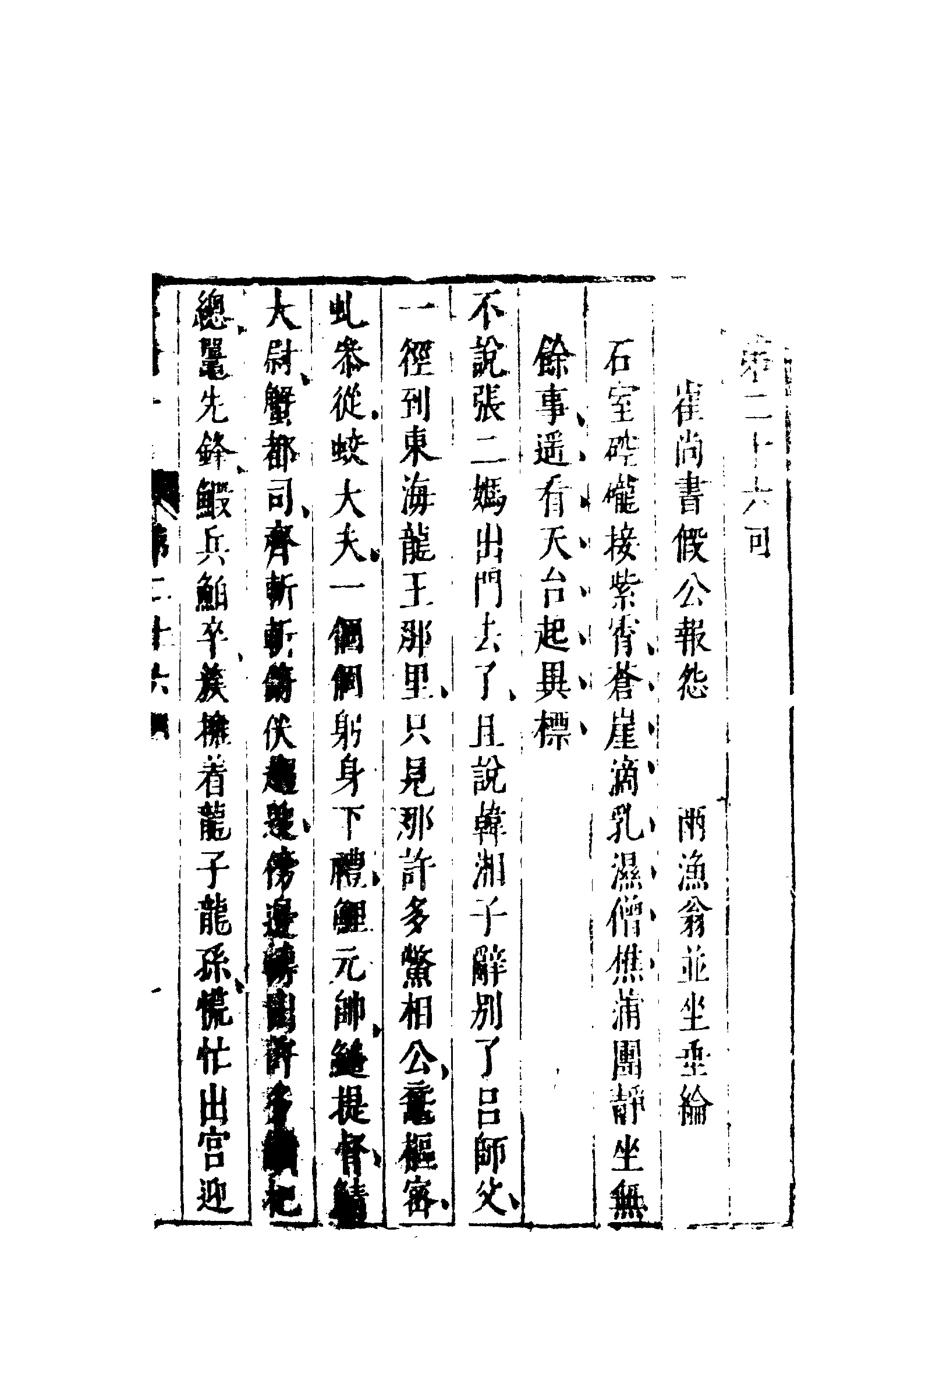 第二十六回
崔尚書假公報怨　兩漁翁並坐垂綸
石室硿巄接紫霄蒼崖滴乳濕僧樵蒲團靜坐無
餘事遥看天台起異標
不說張二媽出門去了且說韓湘子辭別了吕師父
一徑到東海龍王那里只見那許多鱉相公黿樞密
虬叅從蛟大夫一個個躬身下禮鯉元帥鰱提督鯖
大尉蟹都司齊斬斬俯伏傍邊轉出許多
總鼍先鋒鰕兵鮊卒簇擁着龍子龍孫慌忙出宫迎
第二十六